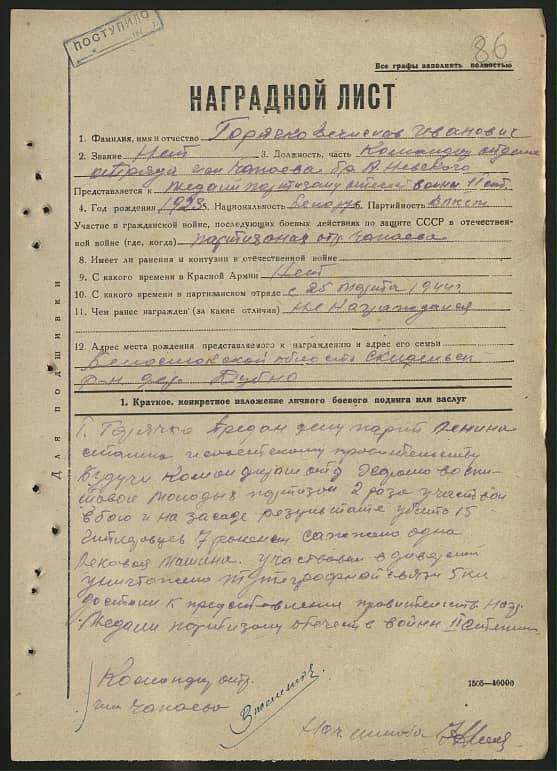 ПОСТУПИЛО
86
Все графы заполнять полностью
НАГРАДНОЙ ЛИСТ
1. Фамилия, имя и отчество Горячко Иванович
2. Звание Нет 3. Должность, часть Командир отделе
отряда им Чапаева бр А. Невского
Представляется к Медали партизану войны II ст.
4. Год рождения 1923 5. Национальность Белорус Партийность ВЛКСМ
Участие в гражданской войне, последующих боевых действиях по защите СССР в отечествен-
ной войне (где, когда) партизаном отр Чапаева
8. Имеет ли ранения и контузии в отечественной войне
9. С какого времени в Красной Армии Нет
10. С какого времени в партизанском отряде с 25 марта 1944г.
11. Чем ранее награжден (за какие отличия) не награждался
12. Адрес места рождения представляемого к награждению и адрес его семьи
Белостокской область Скидельск
р-н дер. Дубно
Для подшивки
1. Краткое, конкретное изложение личного боевого подвига или заслуг
Т. Горячко предан делу парти Ленина
сталина и советскому правительству
Будучи командиром отд хорошо воспи
молодых партизан 2 раза участвов
в бою и на засаде результате убито 15
гитлеровцев 7 ранено сажжено одна
легковая машина. участвовал в диверсии
уничтожено связи 5 км
достоин к представлению правительств нагр.
Медали партизану отечеств войны II степени
Командир отр.
им Чапаева
1505—10000
Нач. штаба